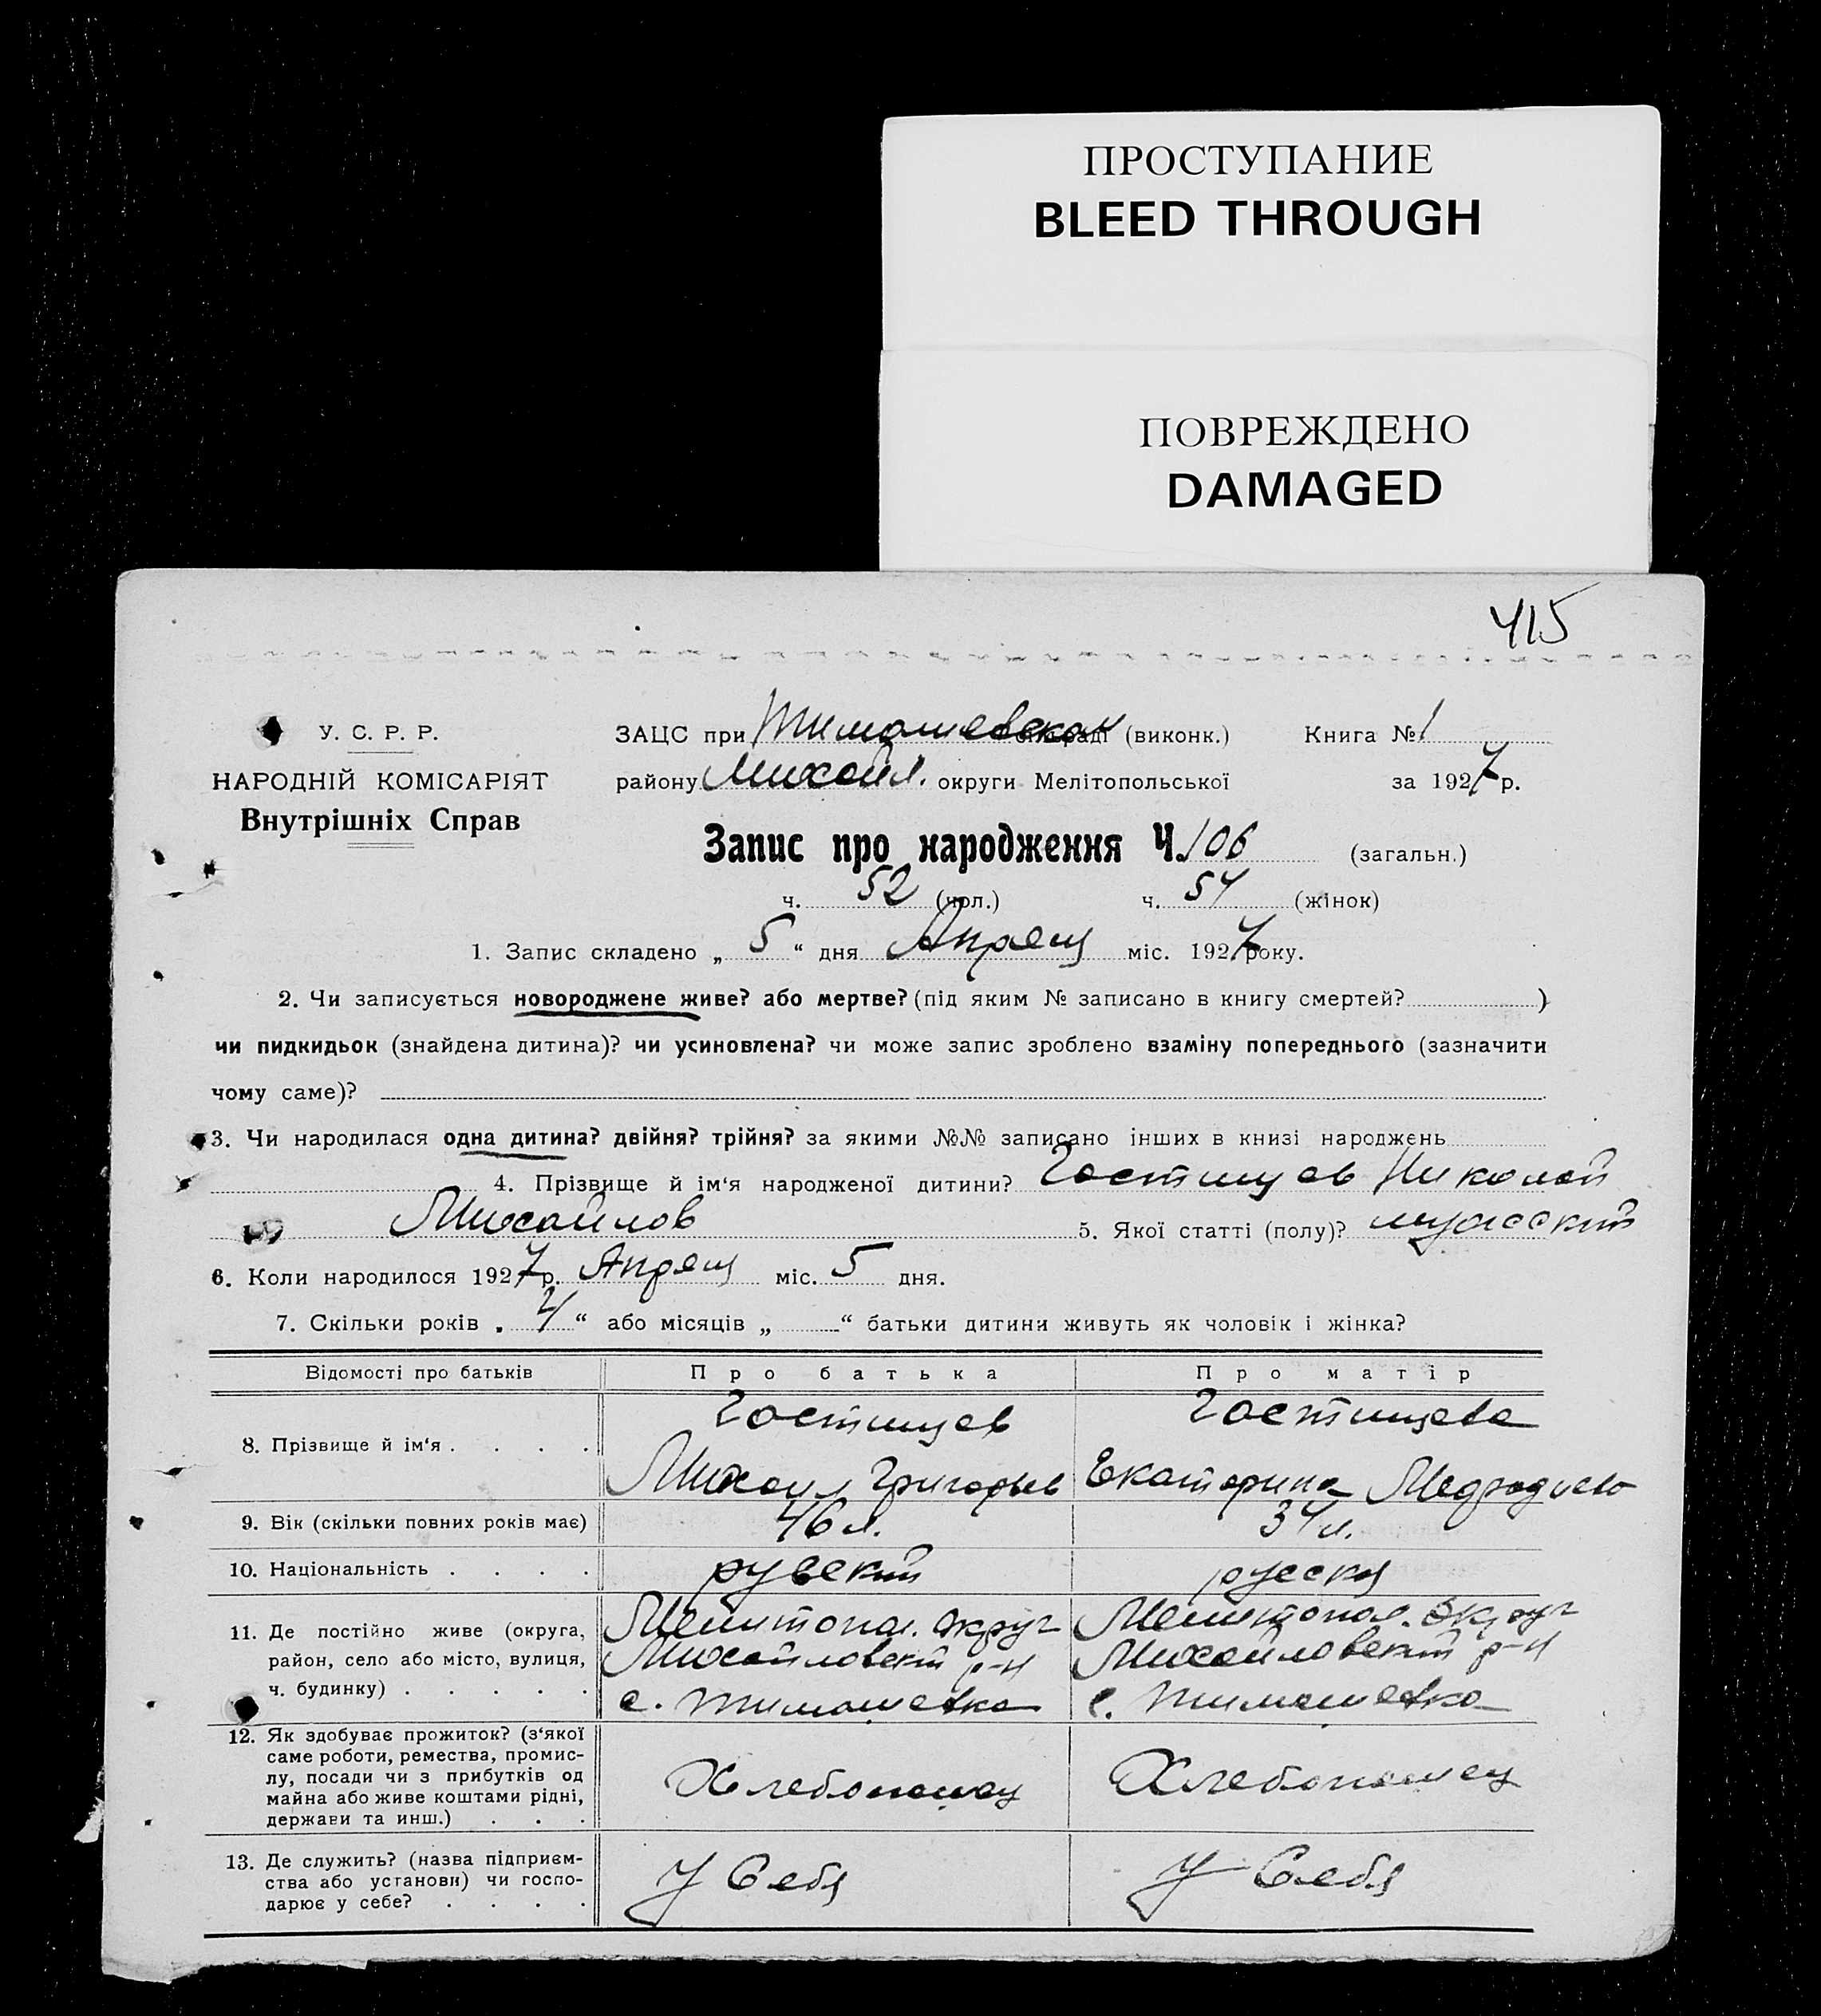 ПРОСТУПАНИЕ
BLEED THROUGH
ПОВРЕЖДЕНО
DAMAGED
415
У. С. Р. Р.
НАРОДНІЙ КОМІСАРІЯТ
Внутрішніх Справ
ЗАЦС при Тимошевском (виконк.) Книга № 1
району Михайл. округи Мелітопольської за 1927 р.
Запис про народження Ч. 106 (загальн.)
ч. 52 (чол.) ч. 54 (жінок)
1. Запис складено „ 5 “ дня Апреля міс. 1927 року.
2. Чи записується новороджене живе? або мертве? (під яким № записано в книгу смертей? )
чи пидкидьок (знайдена дитина)? чи усиновлена? чи може запис зроблено взаміну попереднього (зазначити
чому саме)?
3. Чи народилася одна дитина? двійня? трійня? за якими №№ записано інших в книзі народжень
4. Прізвище й ім‘я народженої дитини? Гостищев Николай
Михайлов 5. Якої статті (полу)? мужской
6. Коли народилося 1927 р. Апреля міс. 5 дня.
7. Скільки років „ 4 “ або місяців „ “ батьки дитини живуть як чоловік і жінка?
Відомості про батьків Про батька Про матір
8. Прізвище й ім‘я . . . .
Гостищев
Михаил Григорьев
Гостищева
Екатерина
9. Вік (скільки повних років має) 46 л. 34 л.
10. Національність . . . . русский русска
11. Де постійно живе (округа,
район, село або місто, вулиця,
ч. будинку) . . . . .
Мелитопол. округ
Михайловский р-н
с. Тимошевка
Мелитопол. округ
Михайловский р-н
с. Тимошевка
12. Як здобуває прожиток? (з‘якої
саме роботи, ремества, промис-
лу, посади чи з прибутків од
майна або живе коштами рідні,
держави та инш.) . . .
Хлебопашец
Хлебопашец
13. Де служить? (назва підприєм-
ства або установи) чи госпо-
дарює у себе? . . . .
У Себя
У Себя